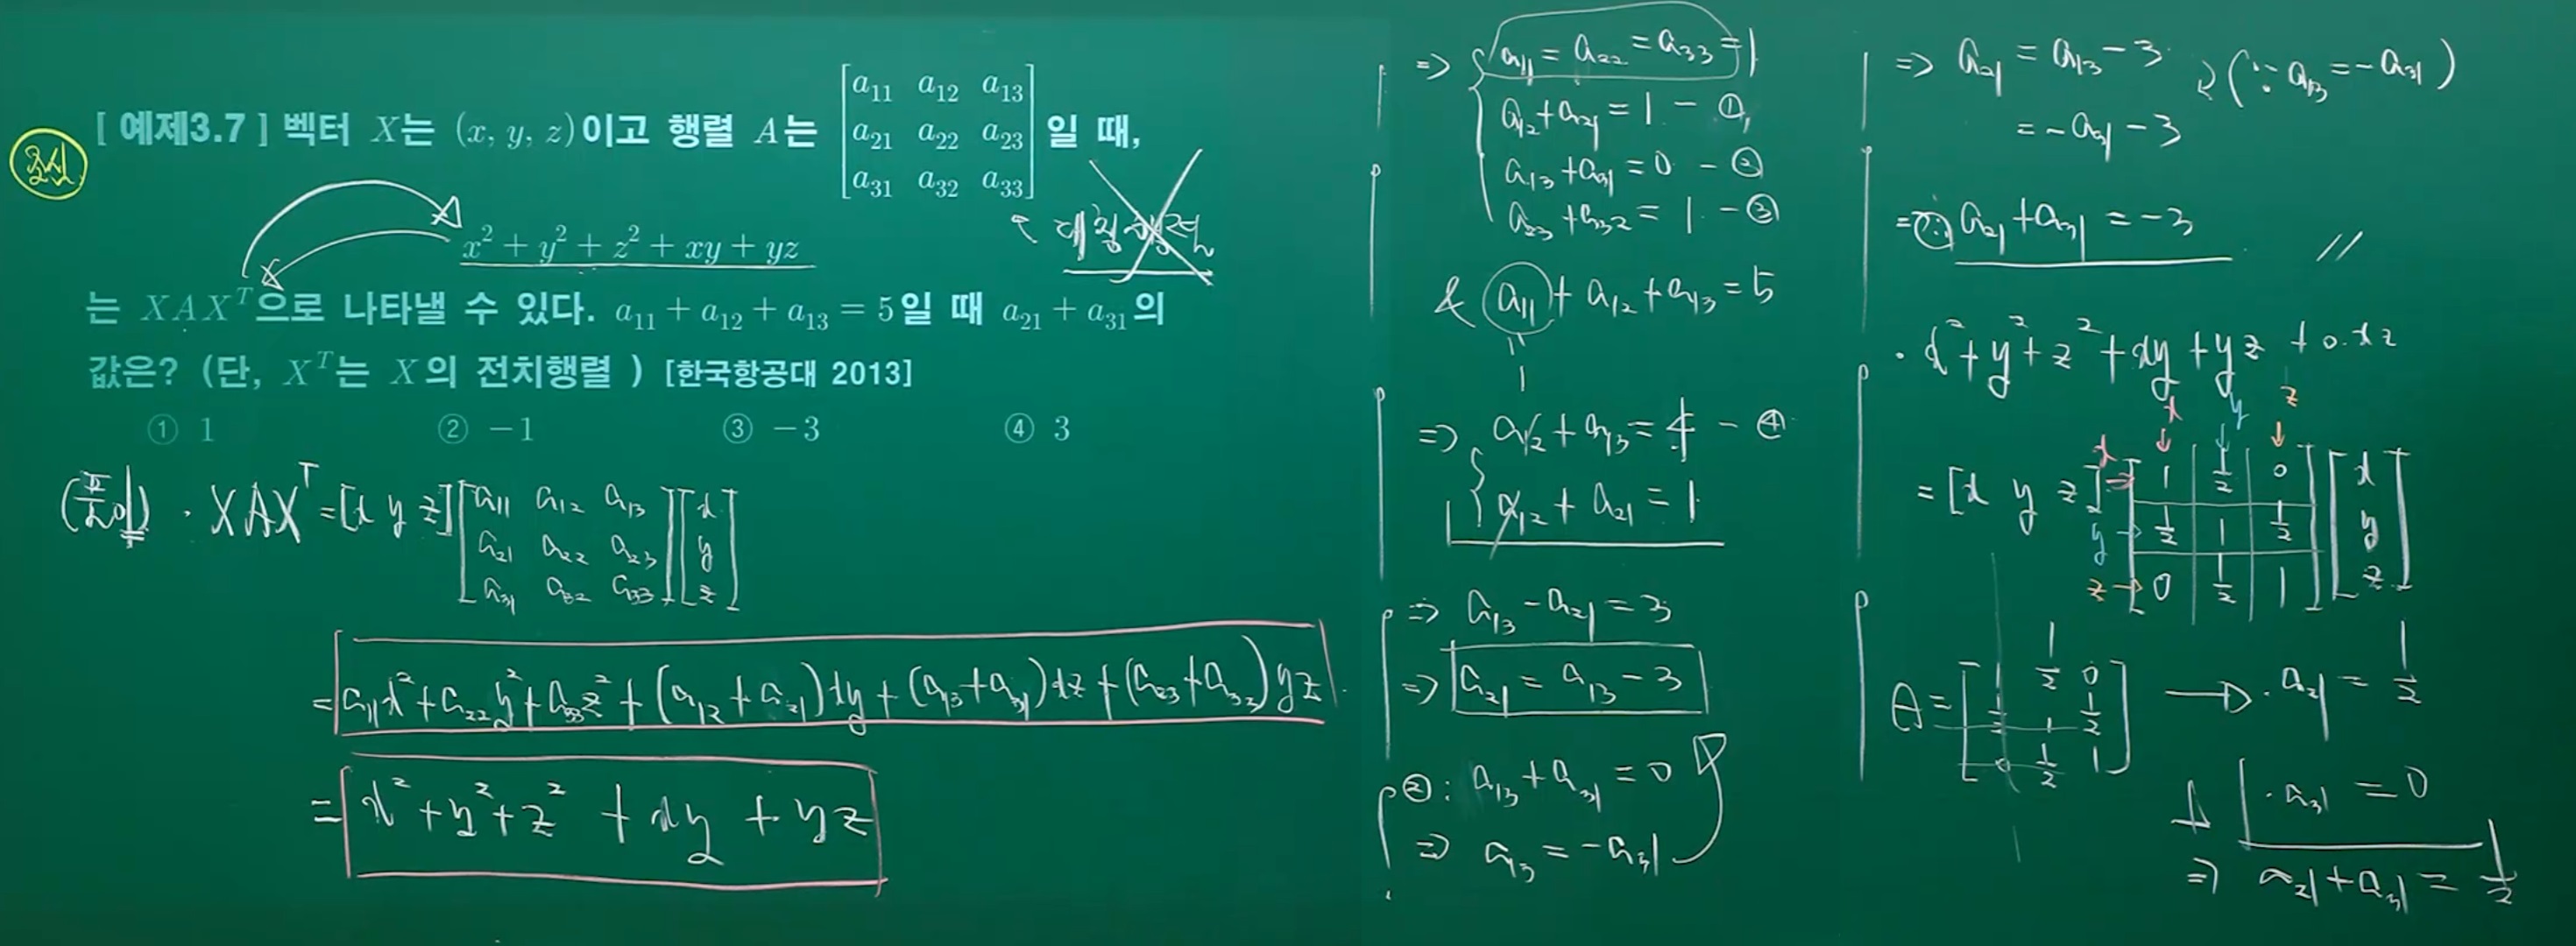 [ 예제3.7 ] 벡터 X는 (x, y, z)이고 행렬 A는 [a₁₁ a₁₂ a₁₃
a₂₁ a₂₂ a₂₃
a₃₁ a₃₂ a₃₃] 일 때,
x² + y² + z² + xy + yz
는 XAXᵀ으로 나타낼 수 있다. a₁₁ + a₁₂ + a₁₃ = 5일 때 a₂₁ + a₃₁의
값은? (단, Xᵀ는 X의 전치행렬 ) [한국항공대 2013]
① 1 ② −1 ③ −3 ④ 3
(풀이) · XAXᵀ = [x y z] [a₁₁ a₁₂ a₁₃
a₂₁ a₂₂ a₂₃
a₃₁ a₃₂ a₃₃] [x
y
z]
= a₁₁x² + a₂₂y² + a₃₃z² + (a₁₂ + a₂₁)xy + (a₁₃ + a₃₁)xz + (a₂₃ + a₃₂)yz
= x² + y² + z² + xy + yz
⇒ a₁₁ = a₂₂ = a₃₃ = 1
a₁₂ + a₂₁ = 1 − ①
a₁₃ + a₃₁ = 0 − ②
a₂₃ + a₃₂ = 1 − ③
& a₁₁ + a₁₂ + a₁₃ = 5
1
⇒ a₁₂ + a₁₃ = 4 − ④
a₁₂ + a₂₁ = 1
⇒ a₁₃ − a₂₁ = 3
⇒ a₂₁ = a₁₃ − 3
②: a₁₃ + a₃₁ = 0
⇒ a₁₃ = −a₃₁
⇒ a₂₁ = a₁₃ − 3 (∵ a₁₃ = −a₃₁)
= −a₃₁ − 3
⇒ ∴ a₂₁ + a₃₁ = −3 //
· x² + y² + z² + xy + yz + 0·xz
x y z
= [x y z] x → [1 1/2 0
y → 1/2 1 1/2
z → 0 1/2 1] [x
y
z]
A = [1 1/2 0
1/2 1 1/2
0 1/2 1] → · a₂₁ = 1/2
+ · a₃₁ = 0
⇒ a₂₁ + a₃₁ = 1/2